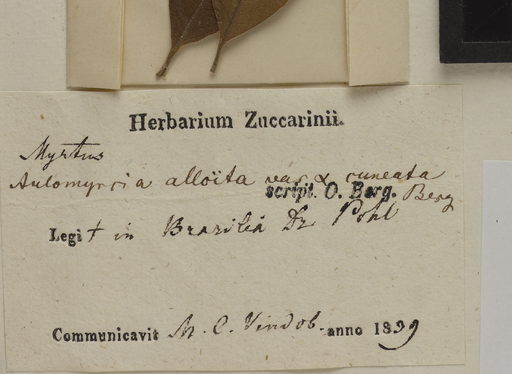 Herbarium Zuccarinii.
Myrtus
Aulomyrcia alloïta var α cuneata
script. O. Berg. Berg
Legit in Brasilia Dr Pohl
Communicavit M. C. Vindob. anno 1839